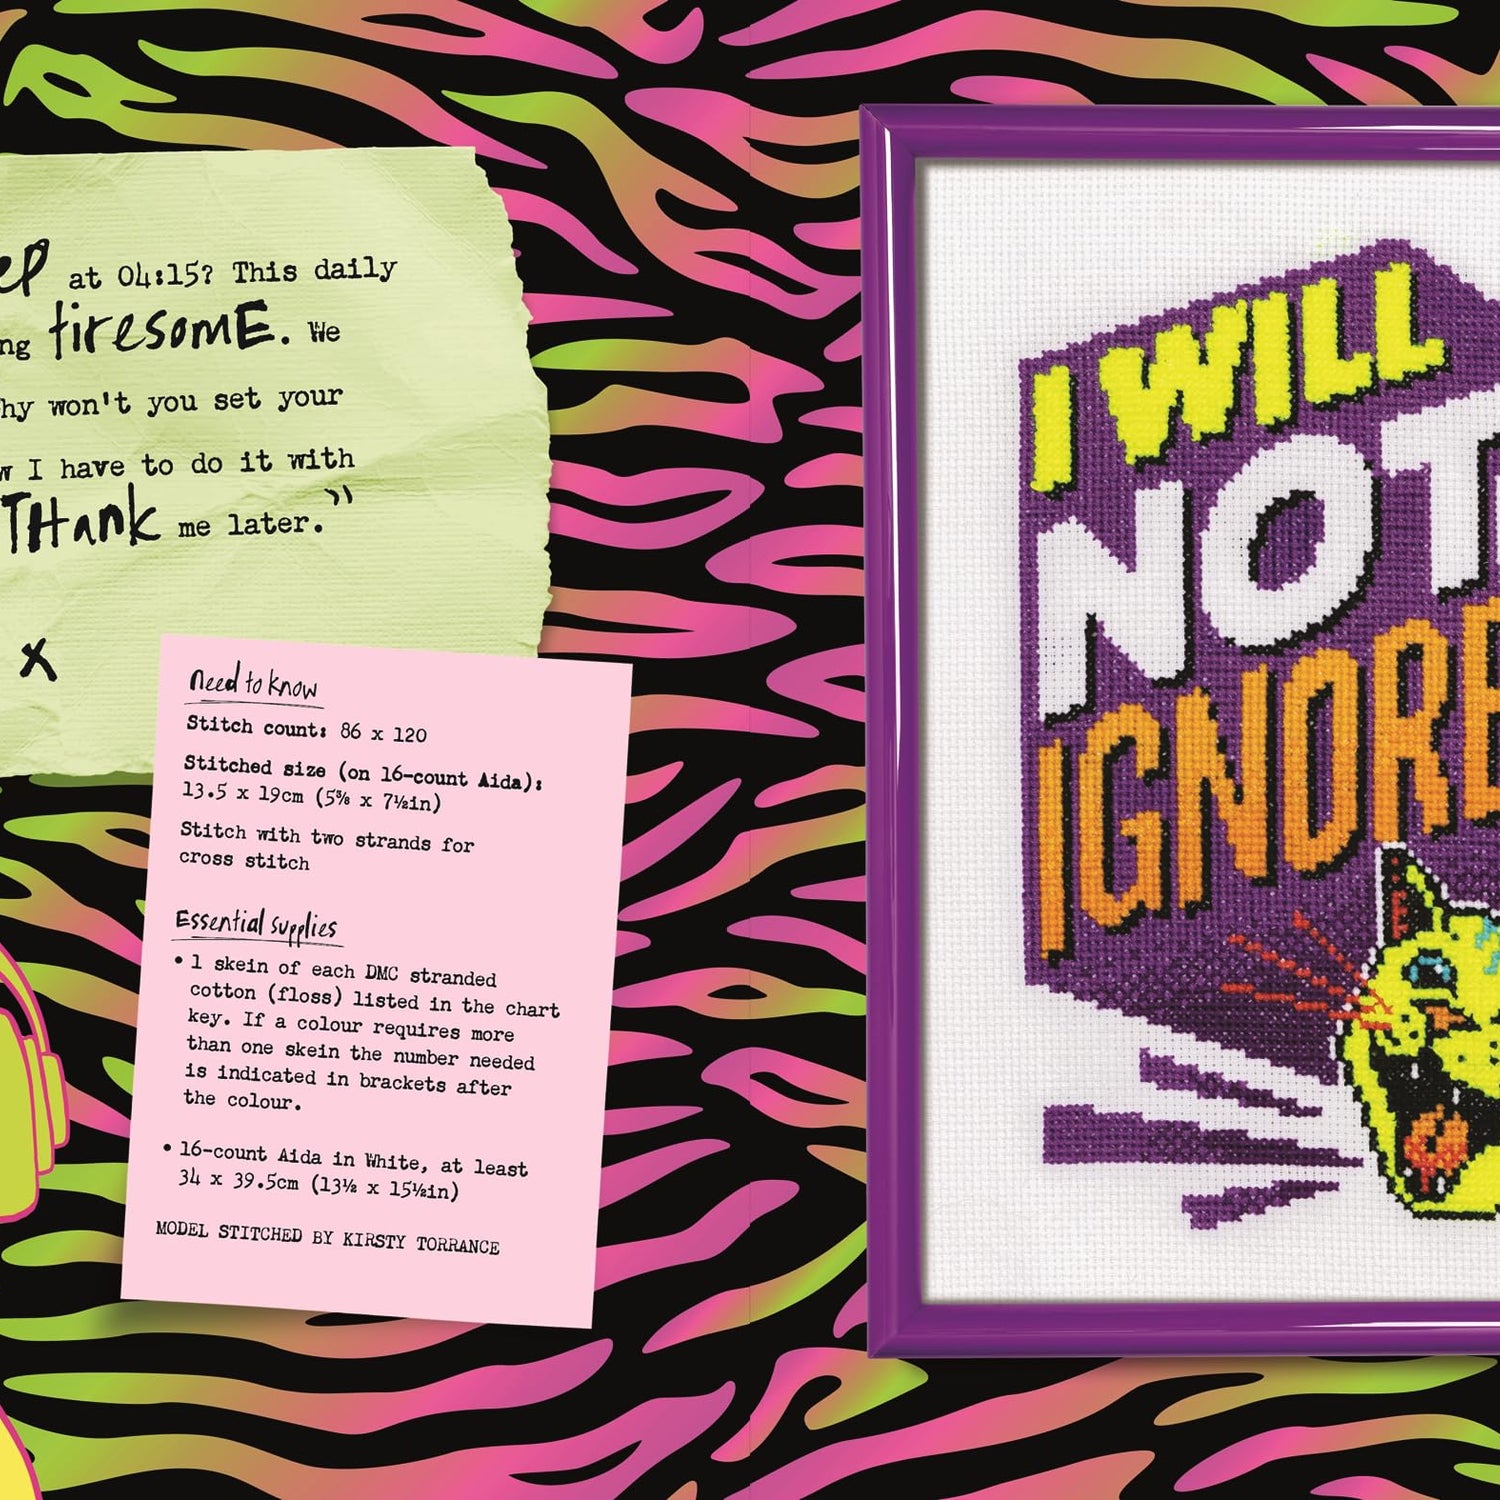 at 04:15? This daily
tiresomE. We
won't you set your
I have to do it with
THank me later.”
x
need to know
Stitch count: 86 x 120
Stitched size (on 16-count Aida):
13.5 x 19cm (5⅜ x 7½in)
Stitch with two strands for
cross stitch
Essential supplies
• 1 skein of each DMC stranded
cotton (floss) listed in the chart
key. If a colour requires more
than one skein the number needed
is indicated in brackets after
the colour.
• 16-count Aida in White, at least
34 x 39.5cm (13½ x 15½in)
MODEL STITCHED BY KIRSTY TORRANCE
I WILL
NOT
IGNORE